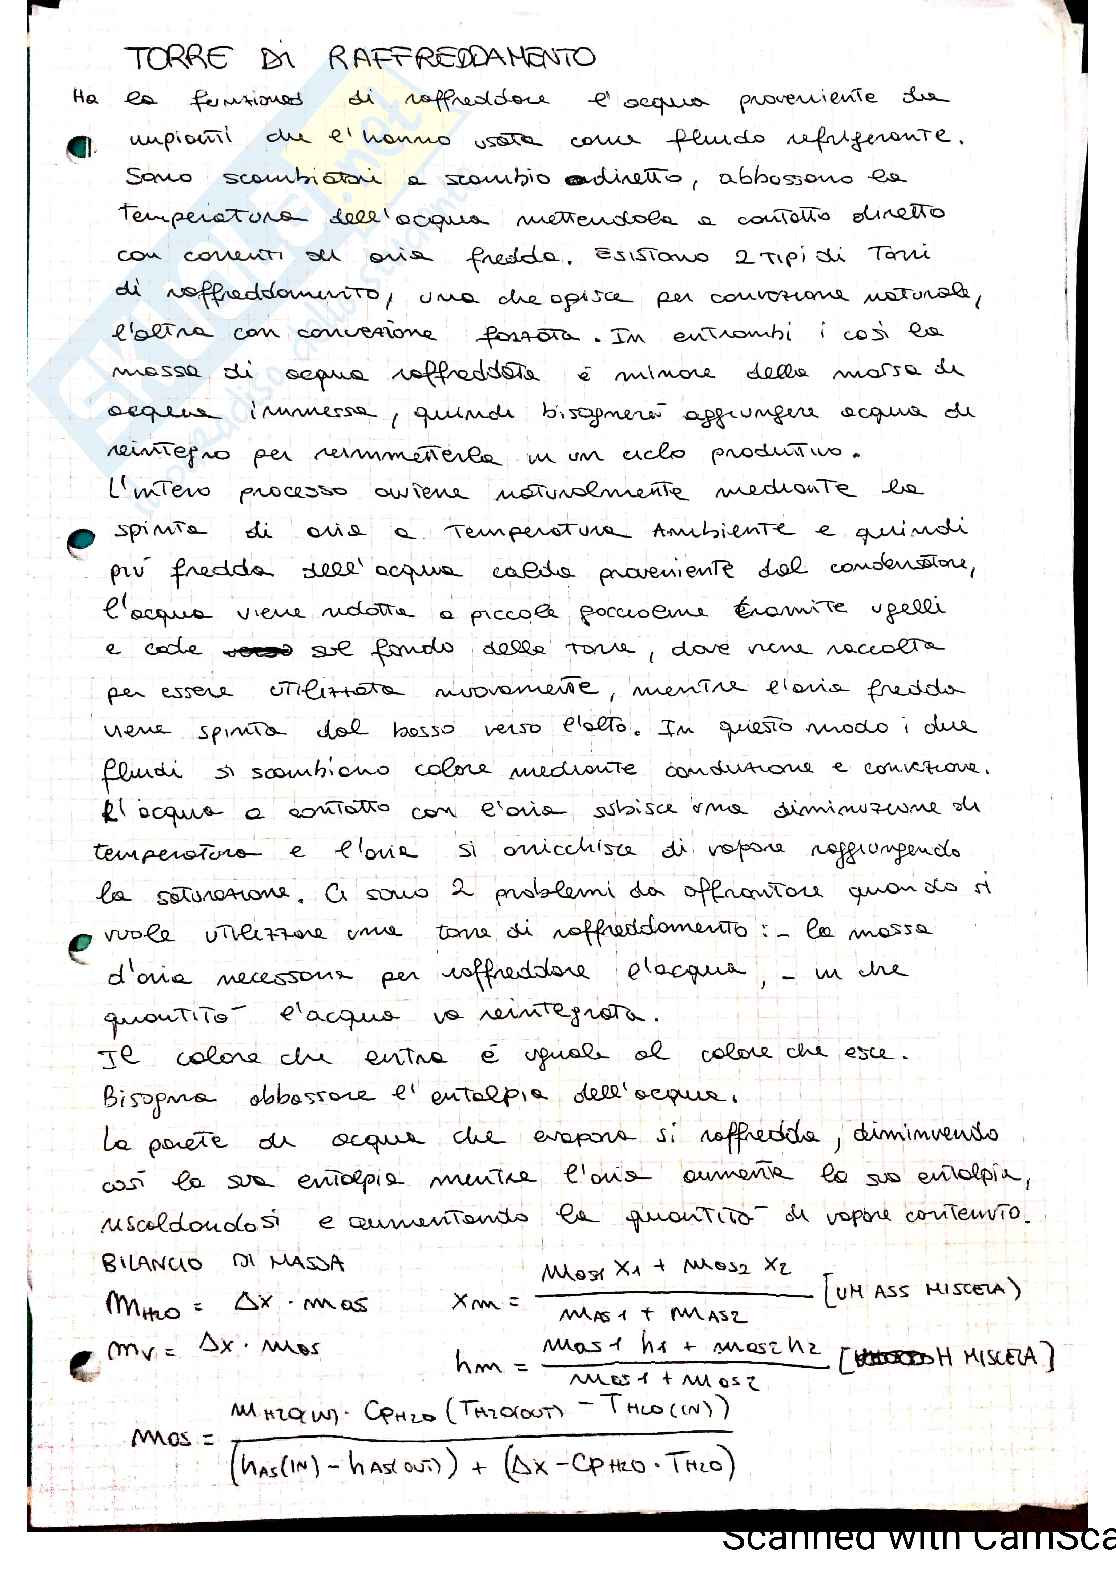 TORRE DI RAFFREDDAMENTO
Ha la funzioned di raffreddare l'acqua proveniente da
impianti che l'hanno usata come fluido refrigerante.
Sono scambiatori a scambio diretto, abbassano la
temperatura dell'acqua mettendola a contatto diretto
con correnti di aria fredda. Esistono 2 tipi di Torri
di raffreddamento, una che agisce per convezione naturale,
l'altra con convezione forzata. In entrambi i casi la
massa di acqua raffreddata è minore della massa di
acqua immessa, quindi bisognerà aggiungere acqua di
reintegro per reimmetterla in un ciclo produttivo.
L'intero processo avviene naturalmente mediante la
spinta di aria a Temperatura Ambiente e quindi
più fredda dell'acqua calda proveniente dal condensatore,
l'acqua viene ridotta a piccole goccioline tramite ugelli
e cade sul fondo della torre, dove viene raccolta
per essere utilizzata nuovamente, mentre l'aria fredda
viene spinta dal basso verso l'alto. In questo modo i due
fluidi si scambiano calore mediante conduzione e convezione.
L'acqua a contatto con l'aria subisce una diminuzione di
temperatura e l'aria si arricchisce di vapore raggiungendo
la saturazione. Ci sono 2 problemi da affrontare quando si
vuole utilizzare una torre di raffreddamento: - la massa
d'aria necessaria per raffreddare l'acqua, - in che
quantità l'acqua va reintegrata.
Il calore che entra è uguale al calore che esce.
Bisogna abbassare l'entalpia dell'acqua.
La parete di acqua che evapora si raffredda, diminuendo
così la sua entalpia mentre l'aria aumenta la sua entalpia,
riscaldandosi e aumentando la quantità di vapore contenuto.
BILANCIO DI MASSA
mH2O = Δx · mas
xm = (mas1 x1 + mas2 x2) / (mAS1 + mAS2) [UM ASS MISCELA)
mv = Δx · mas
hm = (mas1 h1 + mas2 h2) / (mas1 + mas2) [H MISCELA]
mas = (mH2O(IN) · CpH2O (TH2O(OUT) - TH2O(IN))) / ((hAS(IN) - hAS(OUT)) + (Δx - CpH2O · TH2O))
SKUOLA.net
Scanned with CamSca